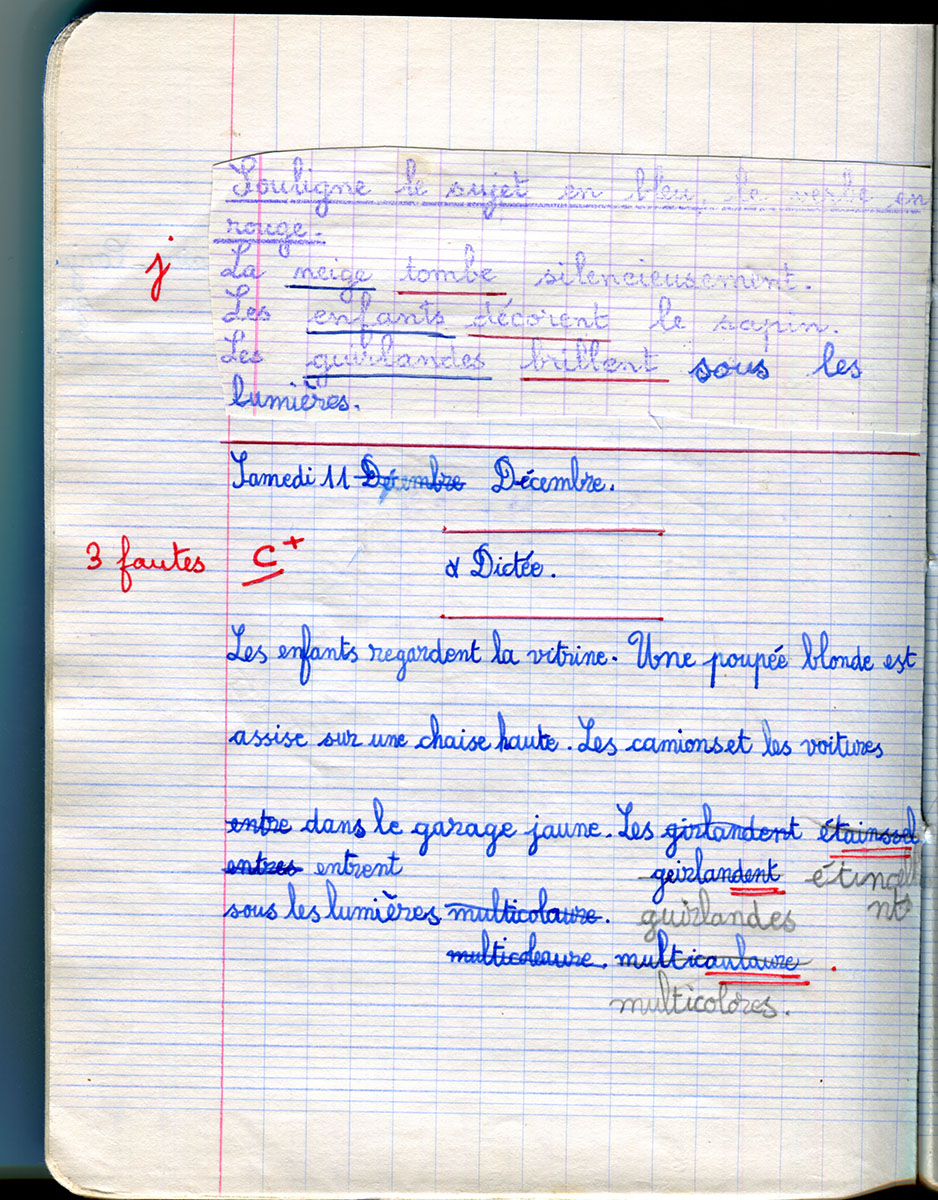 Souligne le sujet en bleu, le verbe en
rouge.
j
La neige tombe silencieusement.
Les enfants décorent le sapin.
Les guirlandes brillent sous les
lumières.
Samedi 11 Décembre Décembre.
3 fautes C+ Dictée.
Les enfants regardent la vitrine. Une poupée blonde est
assise sur une chaise haute. Les camions et les voitures
entre dans le garage jaune. Les girlandent étainssel
entres entrent geirlandent étincelle
nt
sous les lumières multicolaure. guirlandes
multicoleaure. multicaulaure.
multicolores.